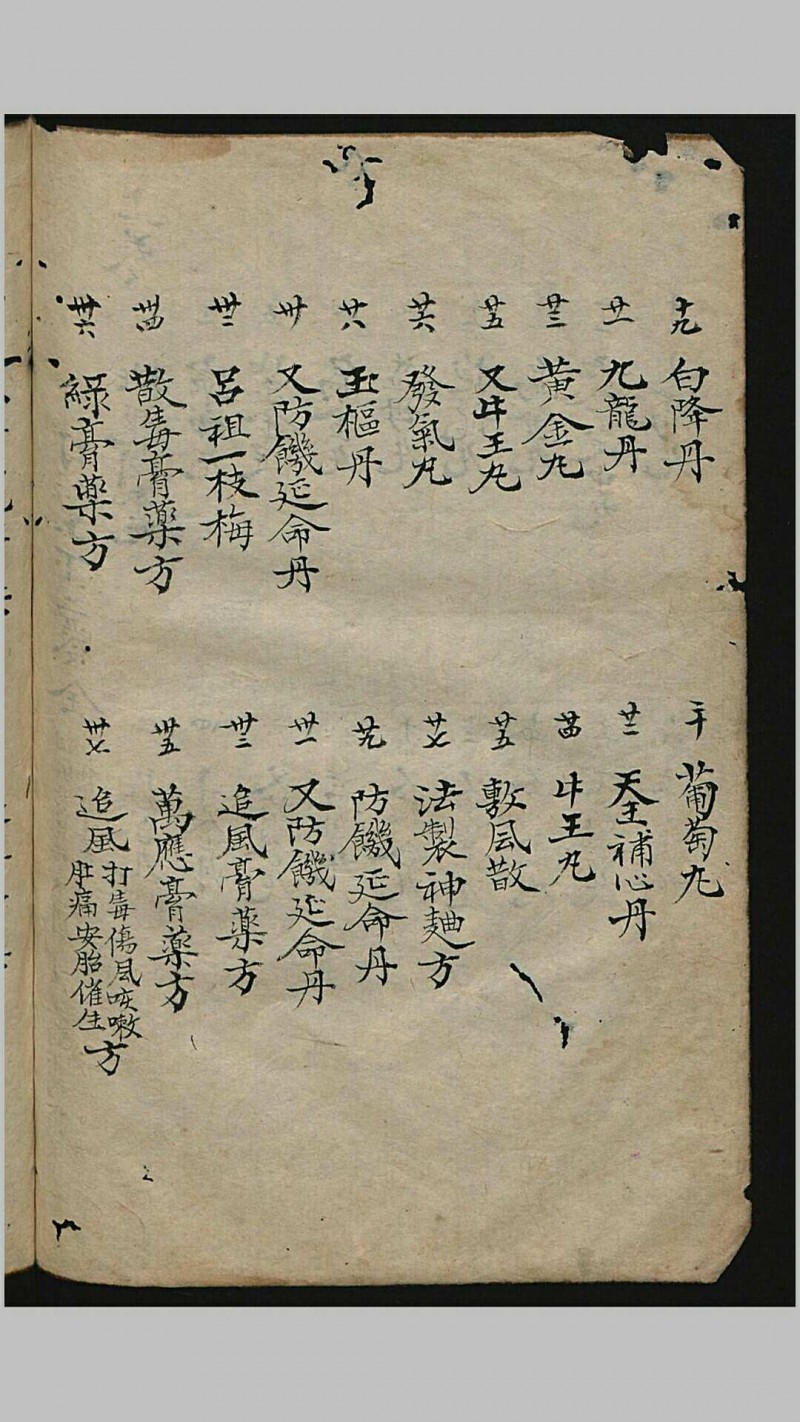 十九 白降丹
二十 葡萄丸
廿一 九龍丹
廿二 天王補心丹
廿三 黃金丸
廿四 牛王丸
廿五 又牛王丸
廿五 敷風散
廿六 發氣丸
廿七 法製神麯方
廿八 玉樞丹
廿九 防饑延命丹
卅 又防饑延命丹
卅一 又防饑延命丹
卅二 呂祖一枝梅
卅三 追風膏藥方
卅四 散毒膏藥方
卅五 萬應膏藥方
卅六 綠膏藥方
卅七 追風打毒傷風咳嗽肚痛安胎催生方